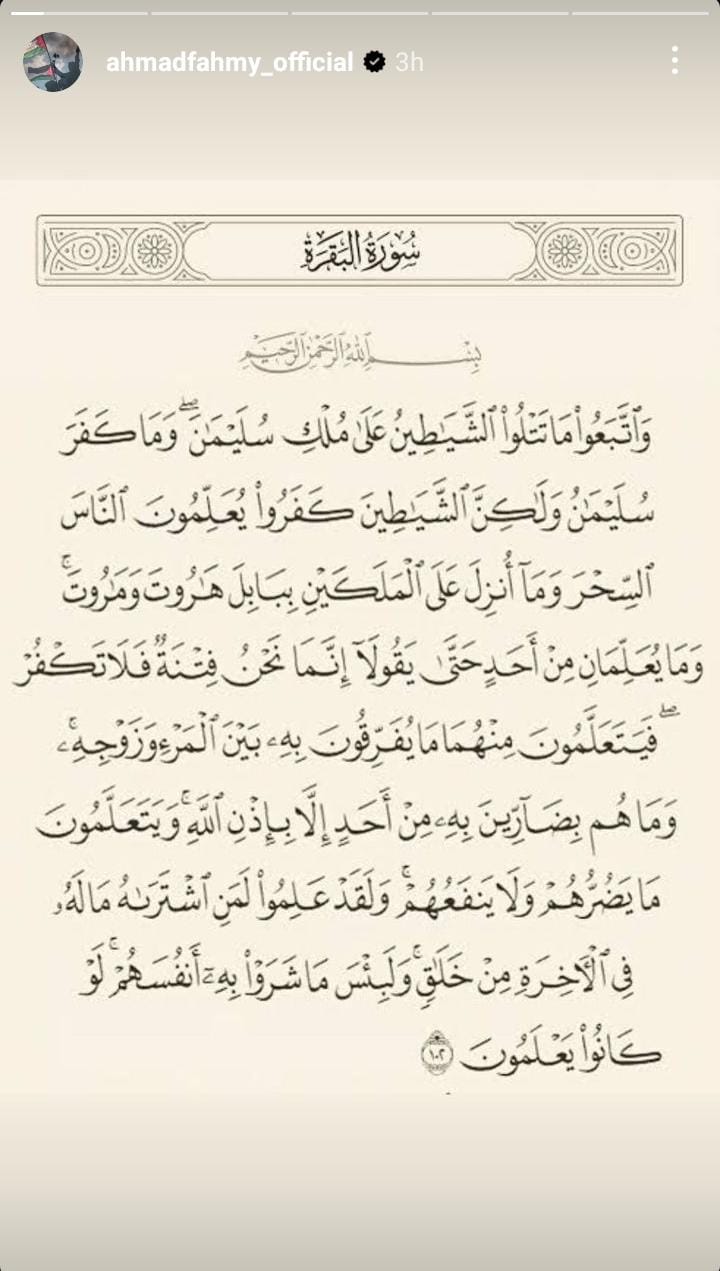 ahmadfahmy_official 3h
سُورَةُ البَقَرَةِ
بِسْمِ ٱللَّهِ ٱلرَّحْمَٰنِ ٱلرَّحِيمِ
وَٱتَّبَعُوا۟ مَا تَتْلُوا۟ ٱلشَّيَٰطِينُ عَلَىٰ مُلْكِ سُلَيْمَٰنَ ۖ وَمَا كَفَرَ
سُلَيْمَٰنُ وَلَٰكِنَّ ٱلشَّيَٰطِينَ كَفَرُوا۟ يُعَلِّمُونَ ٱلنَّاسَ
ٱلسِّحْرَ وَمَآ أُنزِلَ عَلَى ٱلْمَلَكَيْنِ بِبَابِلَ هَٰرُوتَ وَمَٰرُوتَ ۚ
وَمَا يُعَلِّمَانِ مِنْ أَحَدٍ حَتَّىٰ يَقُولَآ إِنَّمَا نَحْنُ فِتْنَةٌ فَلَا تَكْفُرْ
ۖ فَيَتَعَلَّمُونَ مِنْهُمَا مَا يُفَرِّقُونَ بِهِۦ بَيْنَ ٱلْمَرْءِ وَزَوْجِهِۦ ۚ
وَمَا هُم بِضَآرِّينَ بِهِۦ مِنْ أَحَدٍ إِلَّا بِإِذْنِ ٱللَّهِ ۚ وَيَتَعَلَّمُونَ
مَا يَضُرُّهُمْ وَلَا يَنفَعُهُمْ ۚ وَلَقَدْ عَلِمُوا۟ لَمَنِ ٱشْتَرَىٰهُ مَا لَهُۥ
فِى ٱلْءَاخِرَةِ مِنْ خَلَٰقٍ ۚ وَلَبِئْسَ مَا شَرَوْا۟ بِهِۦٓ أَنفُسَهُمْ ۚ لَوْ
كَانُوا۟ يَعْلَمُونَ ١٠٢